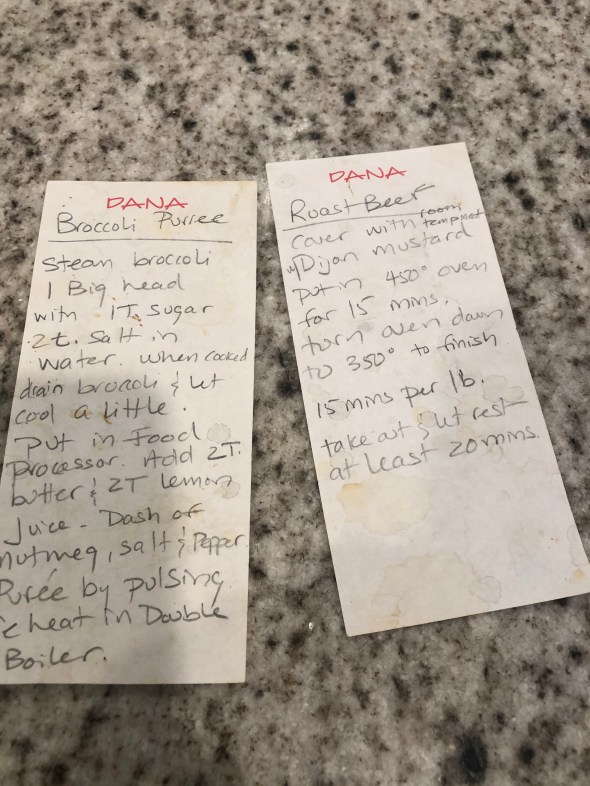 DANA
Broccoli Purree
Steam broccoli
1 Big head
with 1T. Sugar
2t. Salt in
water. when cooked
drain broccoli & let
cool a little.
put in Food
Processor. Add 2T.
butter & 2T lemon
Juice - Dash of
nutmeg, salt & Pepper
Purée by pulsing
heat in Double
Boiler.
DANA
Roast Beef
cover with room
temp
w/Dijon mustard
put in 450° oven
for 15 mins.
turn oven down
to 350° to finish
15 mins per lb.
take out & let rest
at least 20 mins.